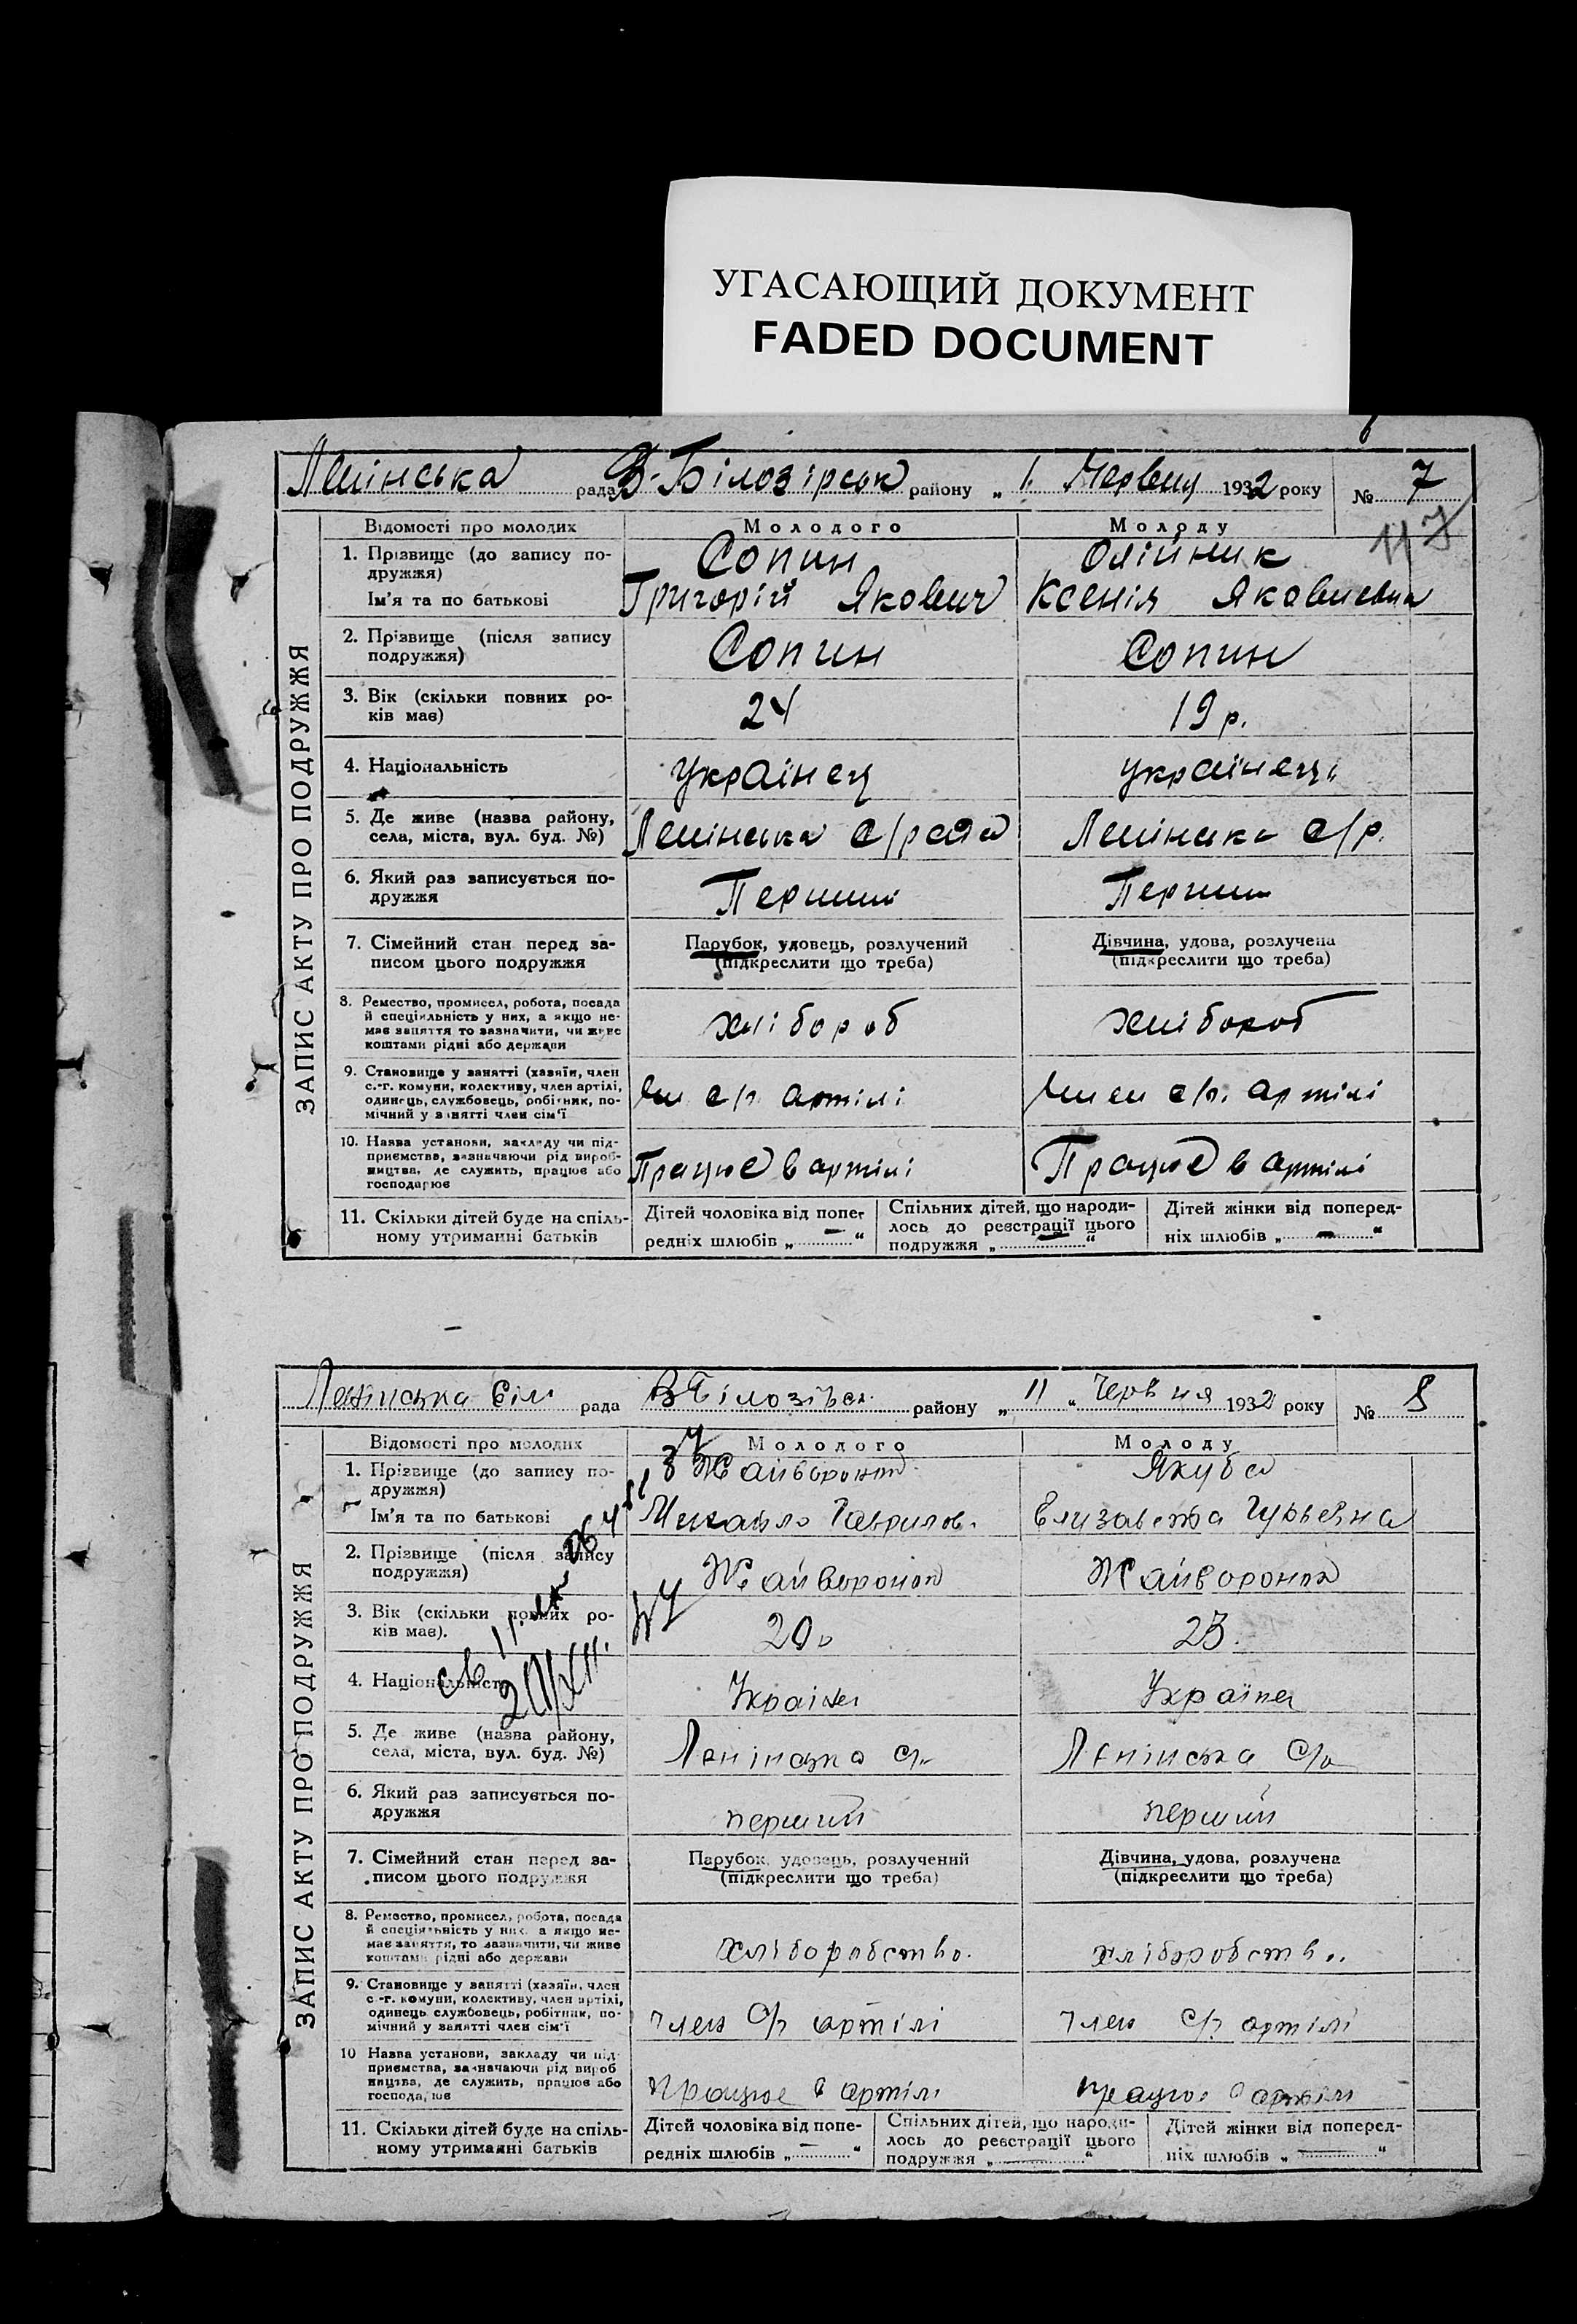 УГАСАЮЩИЙ ДОКУМЕНТ
FADED DOCUMENT
Ленінська рада В-Білозірськ району „ 1. Червня 1932 року № 7
ЗАПИС АКТУ ПРО ПОДРУЖЖЯ
Відомості про молодих Молодого Молоду
1. Прізвище (до запису по-
дружжя) Сопин Олійник
Ім'я та по батькові Григорій Якович Ксенія Яковлевна
2. Прізвище (після запису
подружжя) Сопин Сопин
3. Вік (скільки повних ро-
ків має) 24 19 р.
4. Національність Українец українець
5. Де живе (назва району,
села, міста, вул. буд. №) Ленінська с/рада Ленінська с/р.
6. Який раз записується по-
дружжя Перший Перший
7. Сімейний стан перед за-
писом цього подружжя
Парубок, удовець, розлучений
(підкреслити що треба)
Дівчина, удова, розлучена
(підкреслити що треба)
8. Ремество, промисел, робота, посада
й спеціяльність у них, а якщо не-
має заняття то зазначити, чи живе
коштами рідні або держави
хлібороб хлібороб
9. Становище у занятті (хазяїн, член
с.-г. комуни, колективу, член артілі,
одинець, службовець, робітник, по-
мічний у занятті член сім'ї
Чл с/г. артілі Член с/г. артілі
10. Назва установи, закладу чи під-
приємства, зазначаючи рід вироб-
ництва, де служить, працює або
господарює
Працює в артілі Працює в артілі
11. Скільки дітей буде на спіль-
ному утриманні батьків
Дітей чоловіка від попе-
редніх шлюбів „ — “
Спільних дітей, що народи-
лось до реєстрації цього
подружжя „ — “
Дітей жінки від поперед-
ніх шлюбів „ — “
Ленінська Сіл рада В Білозівск. району „ 11 „ Червня 1932 року № 8
ЗАПИС АКТУ ПРО ПОДРУЖЖЯ
Відомості про молодих Молодого Молоду
1. Прізвище (до запису по-
дружжя) Жайворонок Якуба
Ім'я та по батькові Михайло Гаврилов. Елизавета Гурьевна
2. Прізвище (після запису
подружжя) Жайворонок Жайворонок
3. Вік (скільки повних ро-
ків має). 20 23.
4. Національність
20/XII.
Україна Україна
5. Де живе (назва району,
села, міста, вул. буд. №) Ленінська с/р Ленінська С/р
6. Який раз записується по-
дружжя перший перший
7. Сімейний стан перед за-
писом цього подружжя
Парубок, удовець, розлучений
(підкреслити що треба)
Дівчина, удова, розлучена
(підкреслити що треба)
8. Ремество, промисел, робота, посада
й спеціяльність у них, а якщо не-
має заняття, то зазначити, чи живе
коштами рідні або держави
хліборобство. хліборобств..
9. Становище у занятті (хазяїн, член
с.-г. комуни, колективу, член артілі,
одинець службовець, робітник, по-
мічний у занятті член сім'ї
Член С/г артілі Член С/г артілі
10 Назва установи, закладу чи під-
приємства, зазначаючи рід вироб
ництва, де служить, працює або
господарює
працює в артілі працює в артілі
11. Скільки дітей буде на спіль-
ному утриманні батьків
Дітей чоловіка від попе-
редніх шлюбів „ — “
Спільних дітей, що народи-
лось до реєстрації цього
подружжя „ — “
Дітей жінки від поперед-
ніх шлюбів „ — “